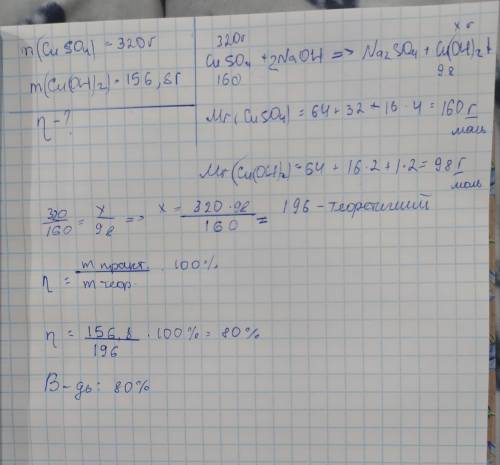 m(CuSO4) = 320г
m(Cu(OH)2) = 156,8г
η - ?
320г x г
CuSO4 + 2NaOH => Na2SO4 + Cu(OH)2↓
160 98
Mr(CuSO4) = 64 + 32 + 16 · 4 = 160 г/моль
Mr(Cu(OH)2) = 64 + 16 · 2 + 1 · 2 = 98 г/моль
320/160 = x/98 => x = 320·98/160 = 196 - теоретичний
η = m практ./m теор. · 100%
η = 156,8/196 · 100% = 80%
В-дь: 80%